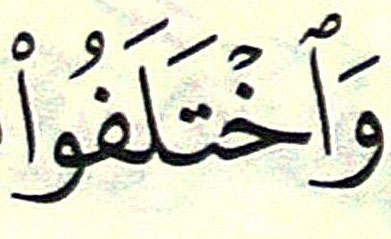 وَٱخْتَلَفُوا۟